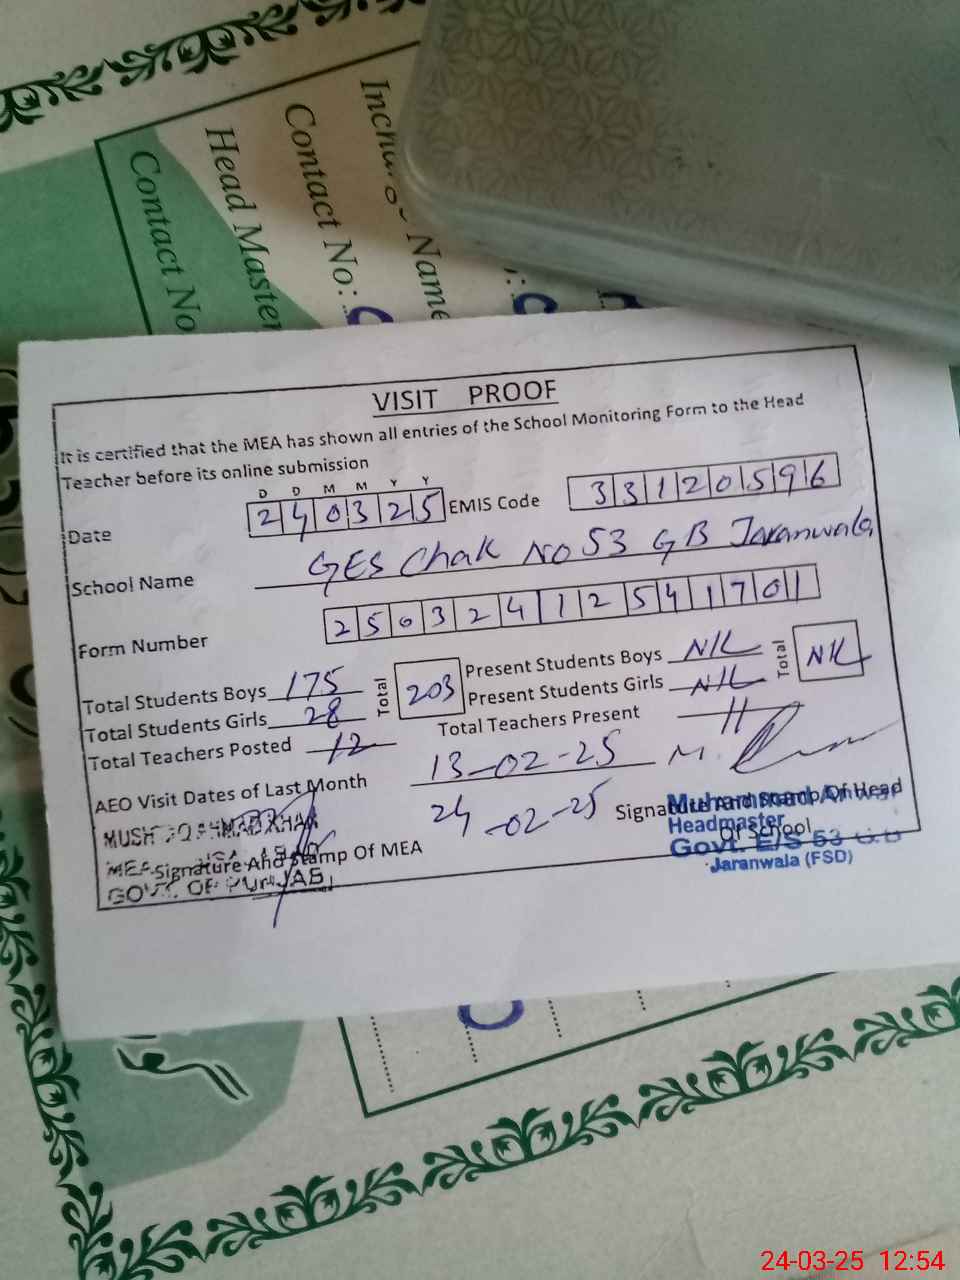 Incharge Name
Contact No:
Head Master
Contact No
VISIT PROOF
It is certified that the MEA has shown all entries of the School Monitoring Form to the Head
Teacher before its online submission
D D M M Y Y
Date 240325 EMIS Code 33120596
School Name GES Chak No 53 GB Jaranwala
Form Number 25032412541701
Total Students Boys 175 Total 203 Present Students Boys Nil Total Nil
Total Students Girls 28 Present Students Girls Nil
Total Teachers Posted 12 Total Teachers Present 11
AEO Visit Dates of Last Month 13-02-25
24-02-25
Signature And Stamp Of Head
Of School
Muhammad Anwar
Headmaster
Govt. E/S 53 G.B
Jaranwala (FSD)
MUSHTAQ AHMAD KHAN
MEA
Signature And Stamp Of MEA
GOVT. OF PUNJAB
24-03-25 12:54